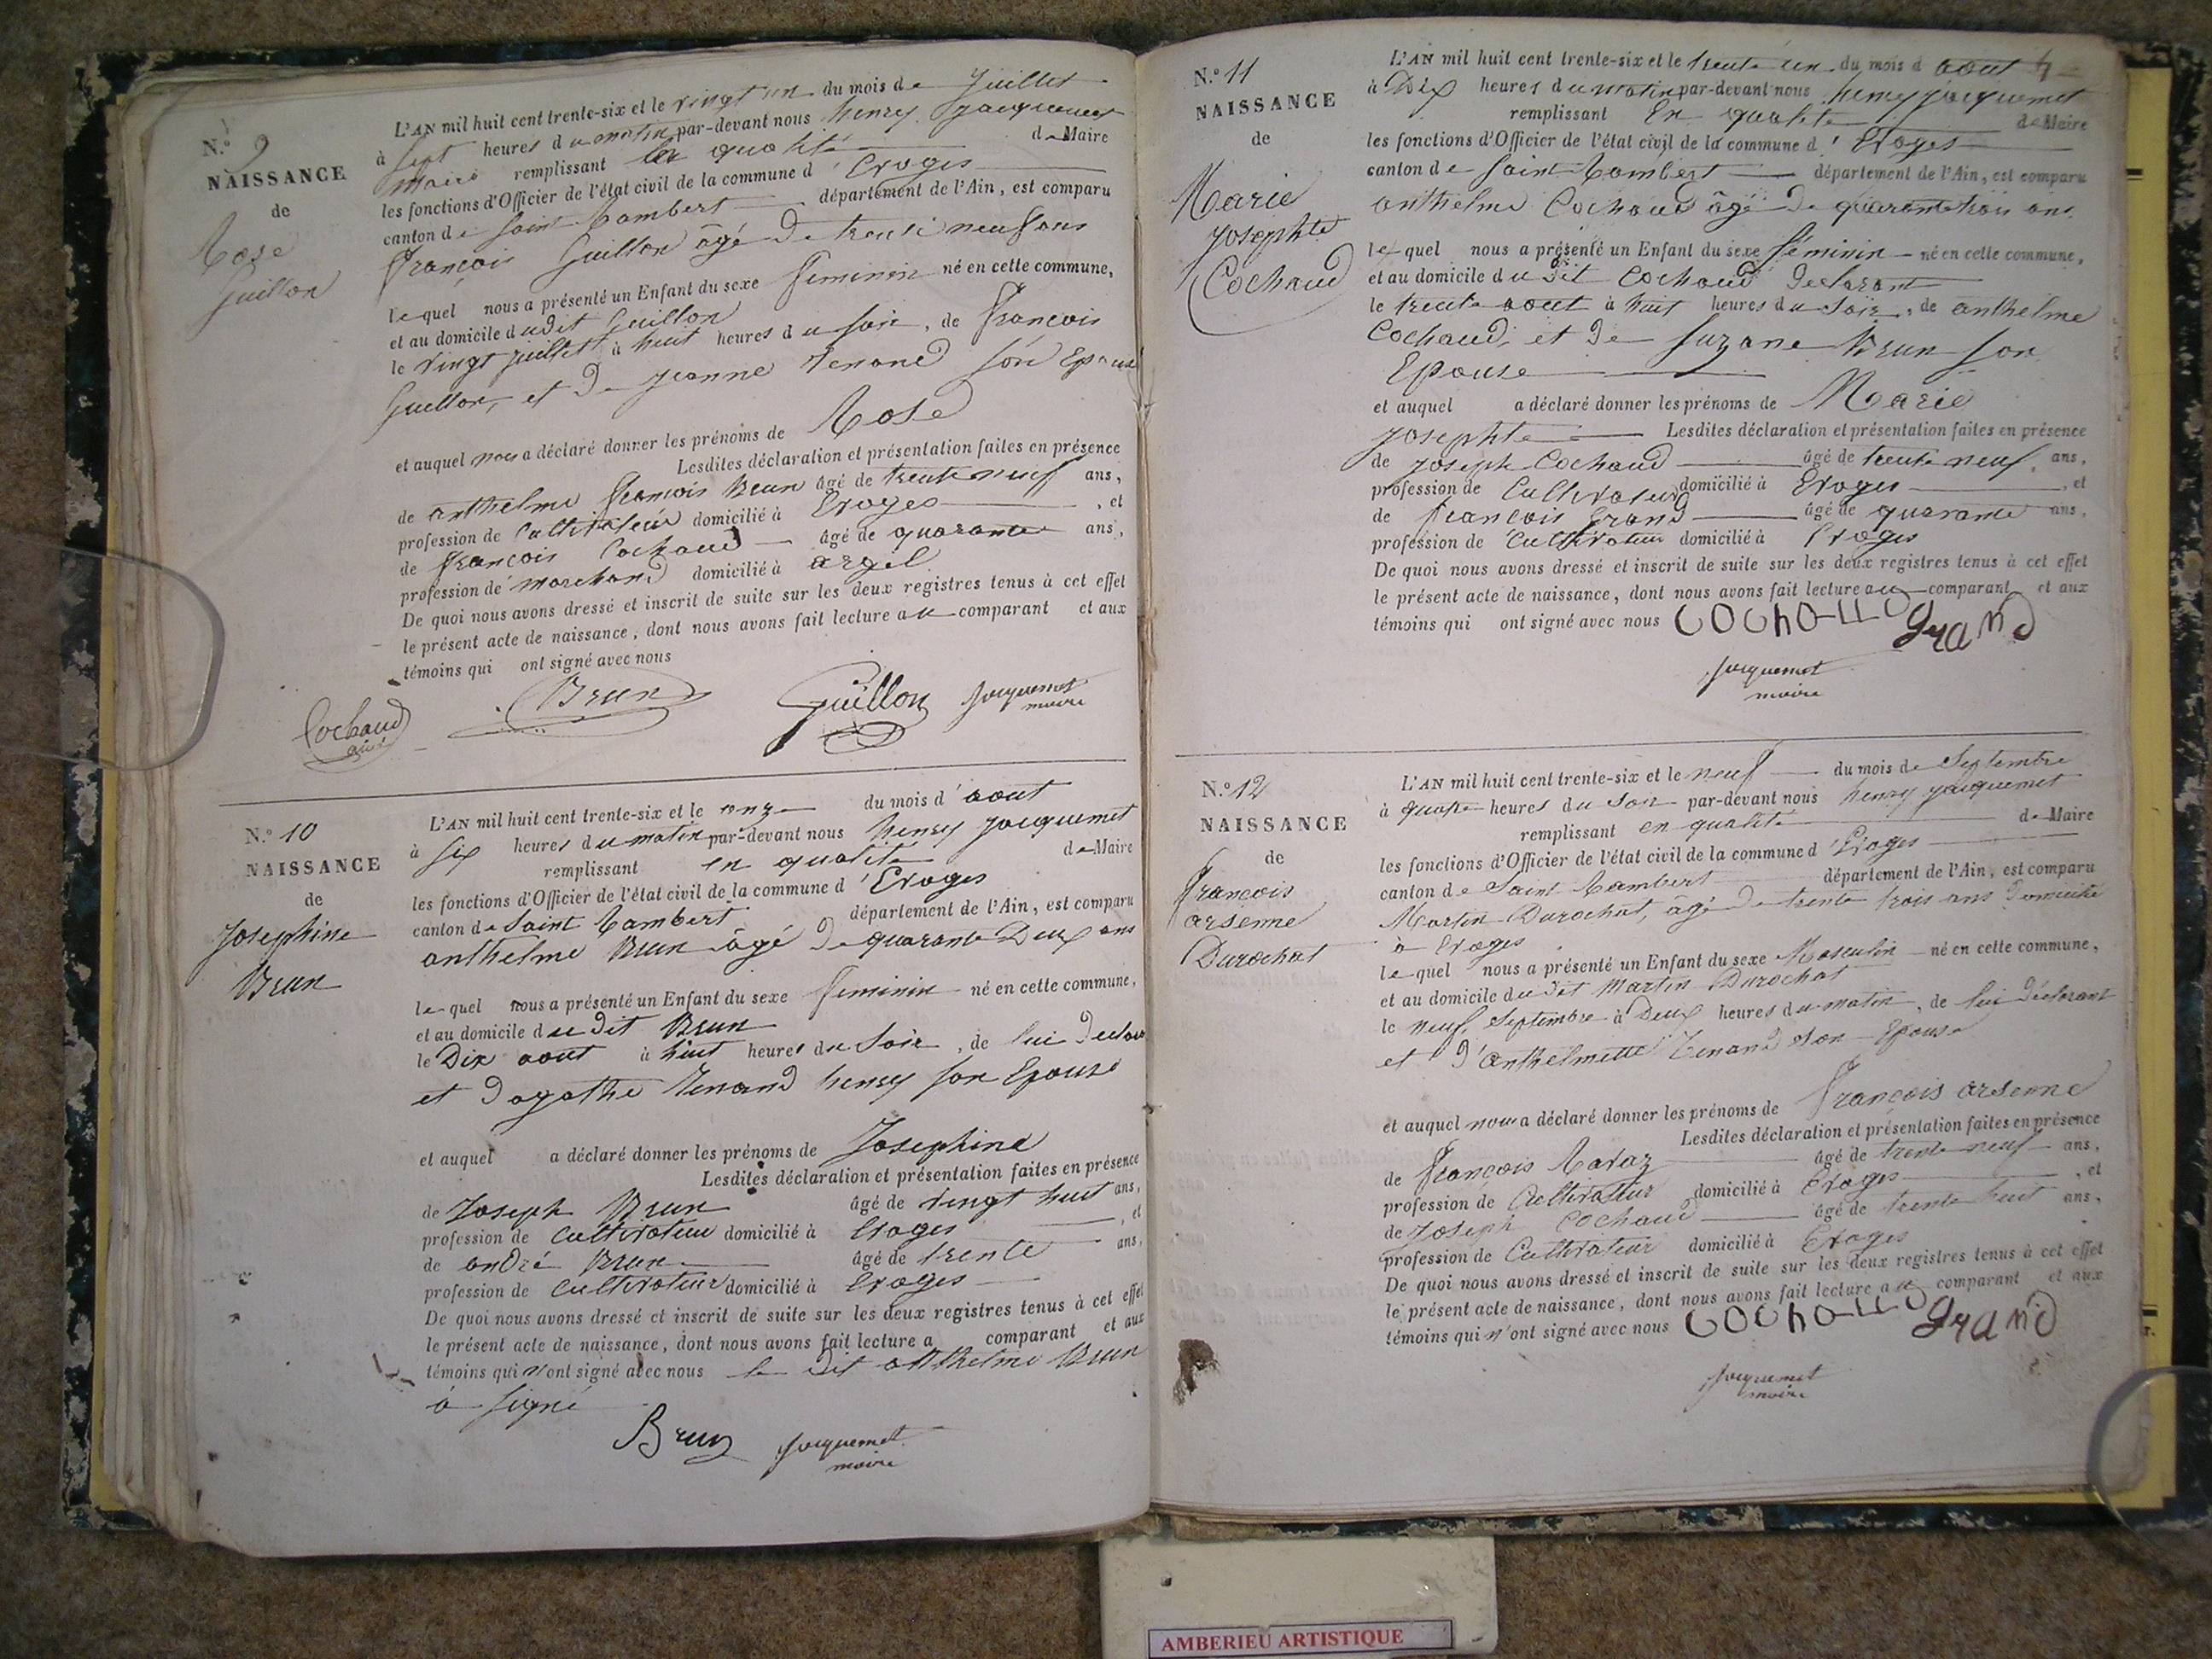 N.º 9
NAISSANCE
de
Rose
Guillon
L'AN mil huit cent trente-six et le vingt un du mois de Juillet
à sept heures du matin par-devant nous henry Jacquemet
maire remplissant en qualité de Maire
les fonctions d'Officier de l'état civil de la commune d'Evoges
canton de Saint Rambert département de l'Ain, est comparu
françois Guillon âgé de trente neuf ans
lequel nous a présenté un Enfant du sexe feminin né en cette commune,
et au domicile dudit Guillon
le vingt juillet à huit heures du soir, de françois
Guillon, et de jeanne Tenand son Epouse
et auquel nous a déclaré donner les prénoms de Rose
Lesdites déclaration et présentation faites en présence
de anthelme françois Brun âgé de trente neuf ans,
profession de Cultivateur domicilié à Evoges, et
de françois Cochaud âgé de quarante ans,
profession de marchand domicilié à argil
De quoi nous avons dressé et inscrit de suite sur les deux registres tenus à cet effet
le présent acte de naissance, dont nous avons fait lecture au comparant et aux
témoins qui ont signé avec nous
Cochaud Brun Guillon Jacquemet
maire
N.º 10
NAISSANCE
de
Josephine
Brun
L'AN mil huit cent trente-six et le onze du mois d'aout
à six heures du matin par-devant nous henry Jacquemet
remplissant en qualité de Maire
les fonctions d'Officier de l'état civil de la commune d'Evoges
canton de Saint Rambert département de l'Ain, est comparu
anthelme Brun âgé de quarante Deux ans
lequel nous a présenté un Enfant du sexe feminin né en cette commune,
et au domicile du dit Brun
le Dix aout à huit heures du soir, de lui
et dagathe Tenand henry son Epouse
et auquel a déclaré donner les prénoms de Josephine
Lesdites déclaration et présentation faites en présence
de Joseph Brun âgé de vingt huit ans,
profession de Cultivateur domicilié à Evoges, et
de andré Brun âgé de trente ans,
profession de Cultivateur domicilié à Evoges
De quoi nous avons dressé et inscrit de suite sur les deux registres tenus à cet effet
le présent acte de naissance, dont nous avons fait lecture a comparant et aux
témoins qui n'ont signé avec nous le dit anthelme Brun
à signé
Brun Jacquemet
maire
N.º 11
NAISSANCE
de
Marie
Josephte
Cochaud
L'AN mil huit cent trente-six et le trente un du mois d aout
à Dix heures du matin par-devant nous henry jacquemet
remplissant En qualité de Maire
les fonctions d'Officier de l'état civil de la commune d'Evoges
canton de Saint Rambert département de l'Ain, est comparu
anthelme Cochaud âgé de quarante trois ans
lequel nous a présenté un Enfant du sexe féminin né en cette commune,
et au domicile du dit Cochaud Declarant
le trente aout à huit heures du Soir, de anthelme
Cochaud, et de Suzane Brun son
Epouse
et auquel a déclaré donner les prénoms de Marie
Josephte Lesdites déclaration et présentation faites en présence
de Joseph Cochaud âgé de trente neuf ans,
profession de Cultivateur domicilié à Evoges, et
de françois Grand âgé de quarante ans,
profession de Cultivateur domicilié à Evoges
De quoi nous avons dressé et inscrit de suite sur les deux registres tenus à cet effet
le présent acte de naissance, dont nous avons fait lecture au comparant et aux
témoins qui ont signé avec nous COCHAUD grand
Jacquemet
maire
N.º 12
NAISSANCE
de
François
arsenne
Durochat
L'AN mil huit cent trente-six et le neuf du mois de Septembre
à quatre heures du soir par-devant nous henry jacquemet
remplissant en qualité de Maire
les fonctions d'Officier de l'état civil de la commune d'Evoges
canton de Saint Rambert département de l'Ain, est comparu
Martin Durochat, âgé de trente trois ans Domicilié
à Evoges
lequel nous a présenté un Enfant du sexe Masculin né en cette commune,
et au domicile du dit Martin Durochat
le neuf Septembre à Deux heures du matin, de lui Déclarant
et d'Anthelmette Tenand son Epouse
et auquel nous a déclaré donner les prénoms de François arsenne
Lesdites déclaration et présentation faites en présence
de François Ravaz âgé de trente neuf ans,
profession de Cultivateur domicilié à Evoges, et
de Joseph Cochaud âgé de trente huit ans,
profession de Cultivateur domicilié à Evoges
De quoi nous avons dressé et inscrit de suite sur les deux registres tenus à cet effet
le présent acte de naissance, dont nous avons fait lecture au comparant et aux
témoins qui n'ont signé avec nous COCHAUD grand
Jacquemet
maire
AMBERIEU ARTISTIQUE